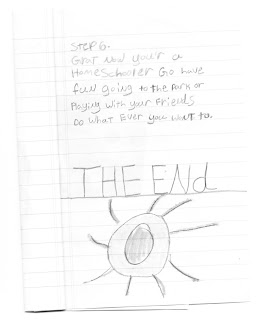 Step 6.
Grat Now your a
Homeschooler Go have
fun going to the Park or
Playing with your Friends
Do what Ever you want to.
THE ENd